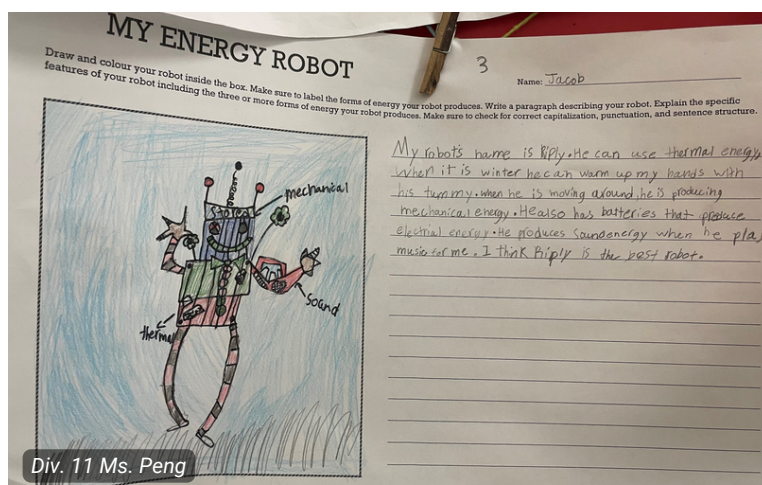 MY ENERGY ROBOT
3
Name: Jacob
Draw and colour your robot inside the box. Make sure to label the forms of energy your robot produces. Write a paragraph describing your robot. Explain the specific
features of your robot including the three or more forms of energy your robot produces. Make sure to check for correct capitalization, punctuation, and sentence structure.
My robot's name is Riply. He can use thermal energy.
When it is winter he can warm up my hands with
his tummy. when he is moving around, he is producing
mechanical energy. He also has batteries that produse
electrial energy. He produces Sound energy when he pla
music for me. I think Riply is the best robot.
Stored
mechanical
Sound
thermal
Div. 11 Ms. Peng